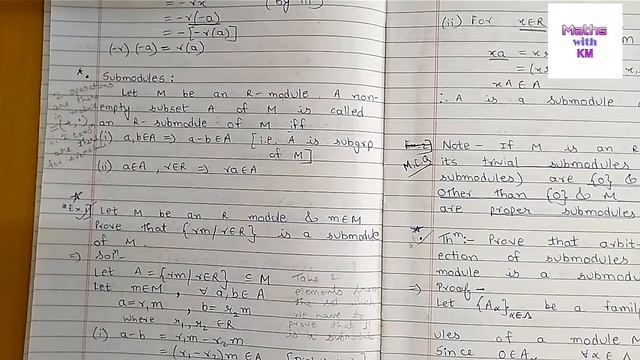 = -rx (by iii)
= -r(-a)
= -[-r(a)]
(-r).(-a) = r(a)
*. Submodules:
Let M be an R-module. A non-
empty subset A of M is called
an R-submodule of M iff
(i) a,b∈A => a-b∈A [i.e. A is subgrp
of M]
(ii) a∈A, r∈R => ra∈A
2 operations
are there
cond
are there
for submodule
*
Ex.1) Let M be an R module & m∈M
Prove that {rm/r∈R} is a submodule
of M.
=> Solⁿ-
Let A = {rm/r∈R} ⊆ M
Let m∈M, ∀ a,b∈A
a = r₁m, b = r₂m
where r₁, r₂ ∈R
(i) a-b = r₁m - r₂m
= (r₁-r₂)m ∈A
Take 2
elements from
the set which
we have to
prove that it
is a submodule
(ii) For x∈R
xa = x
= (x
xA∈A
∴ A is a submodule
Ex-2 Note - If M is an R
M.C.Q. its trivial submodules
submodules) are {0} &
Other than {0} & M
are proper submodules
*. Thᵐ:- Prove that arbit
ection of submodules
module is a submod
=> Proof -
Let {Aα}α∈Δ be a famil
ules of a module
Since 0∈Aα ∀ α∈
Maths
with
KM